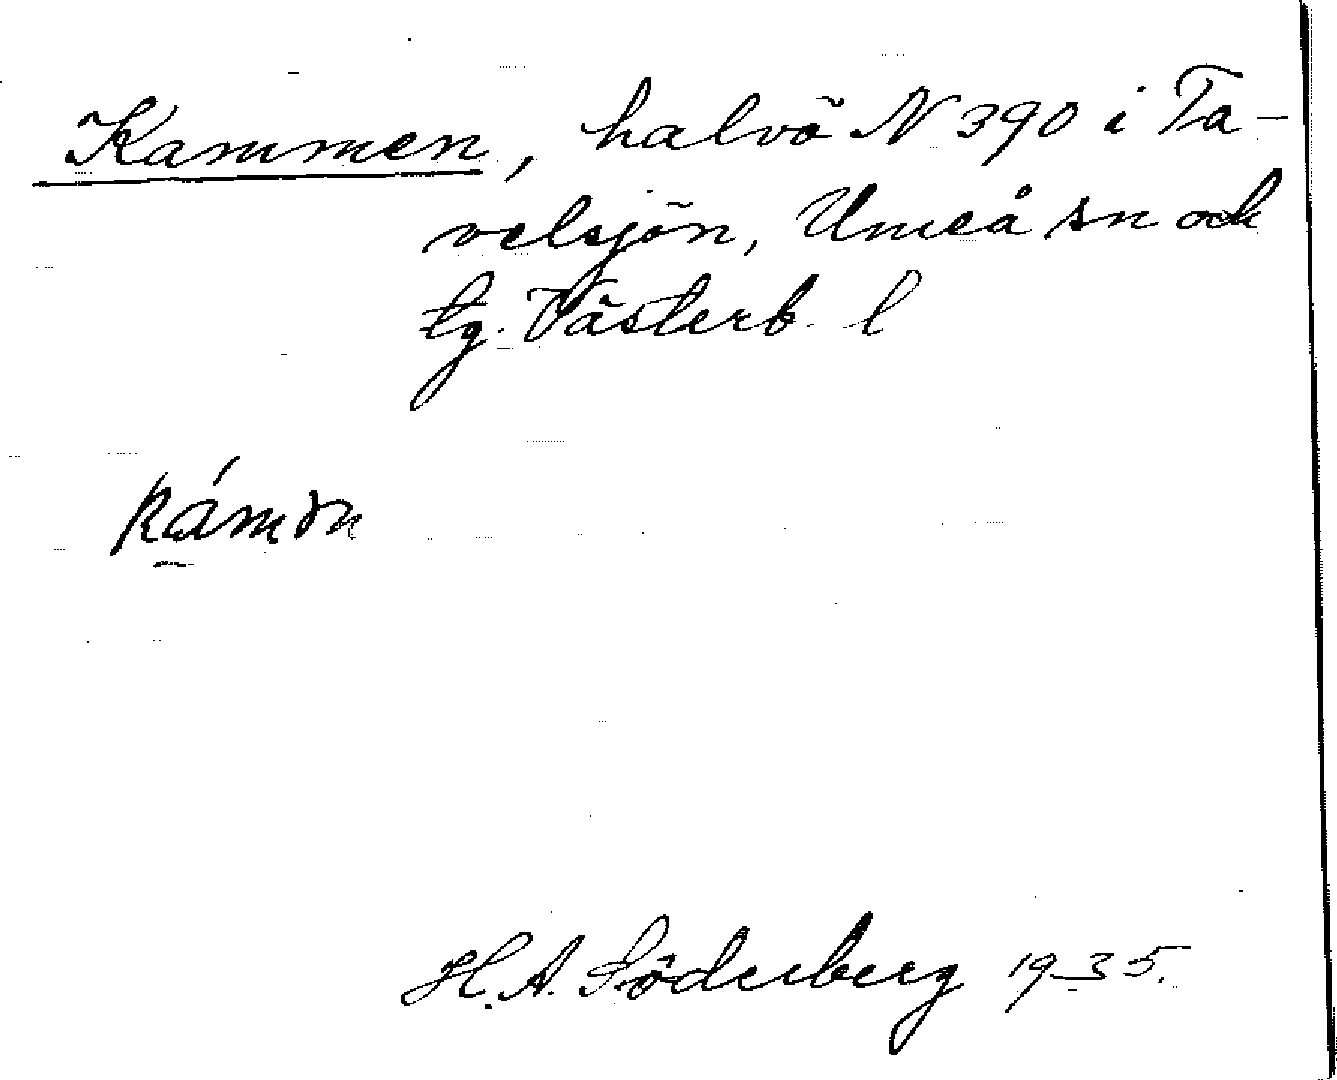 Kammen, halvö N 390 i Ta-
velsjön, Umeå sn och
tg. Västerb. l
kámən
H. A. Söderberg 1935.